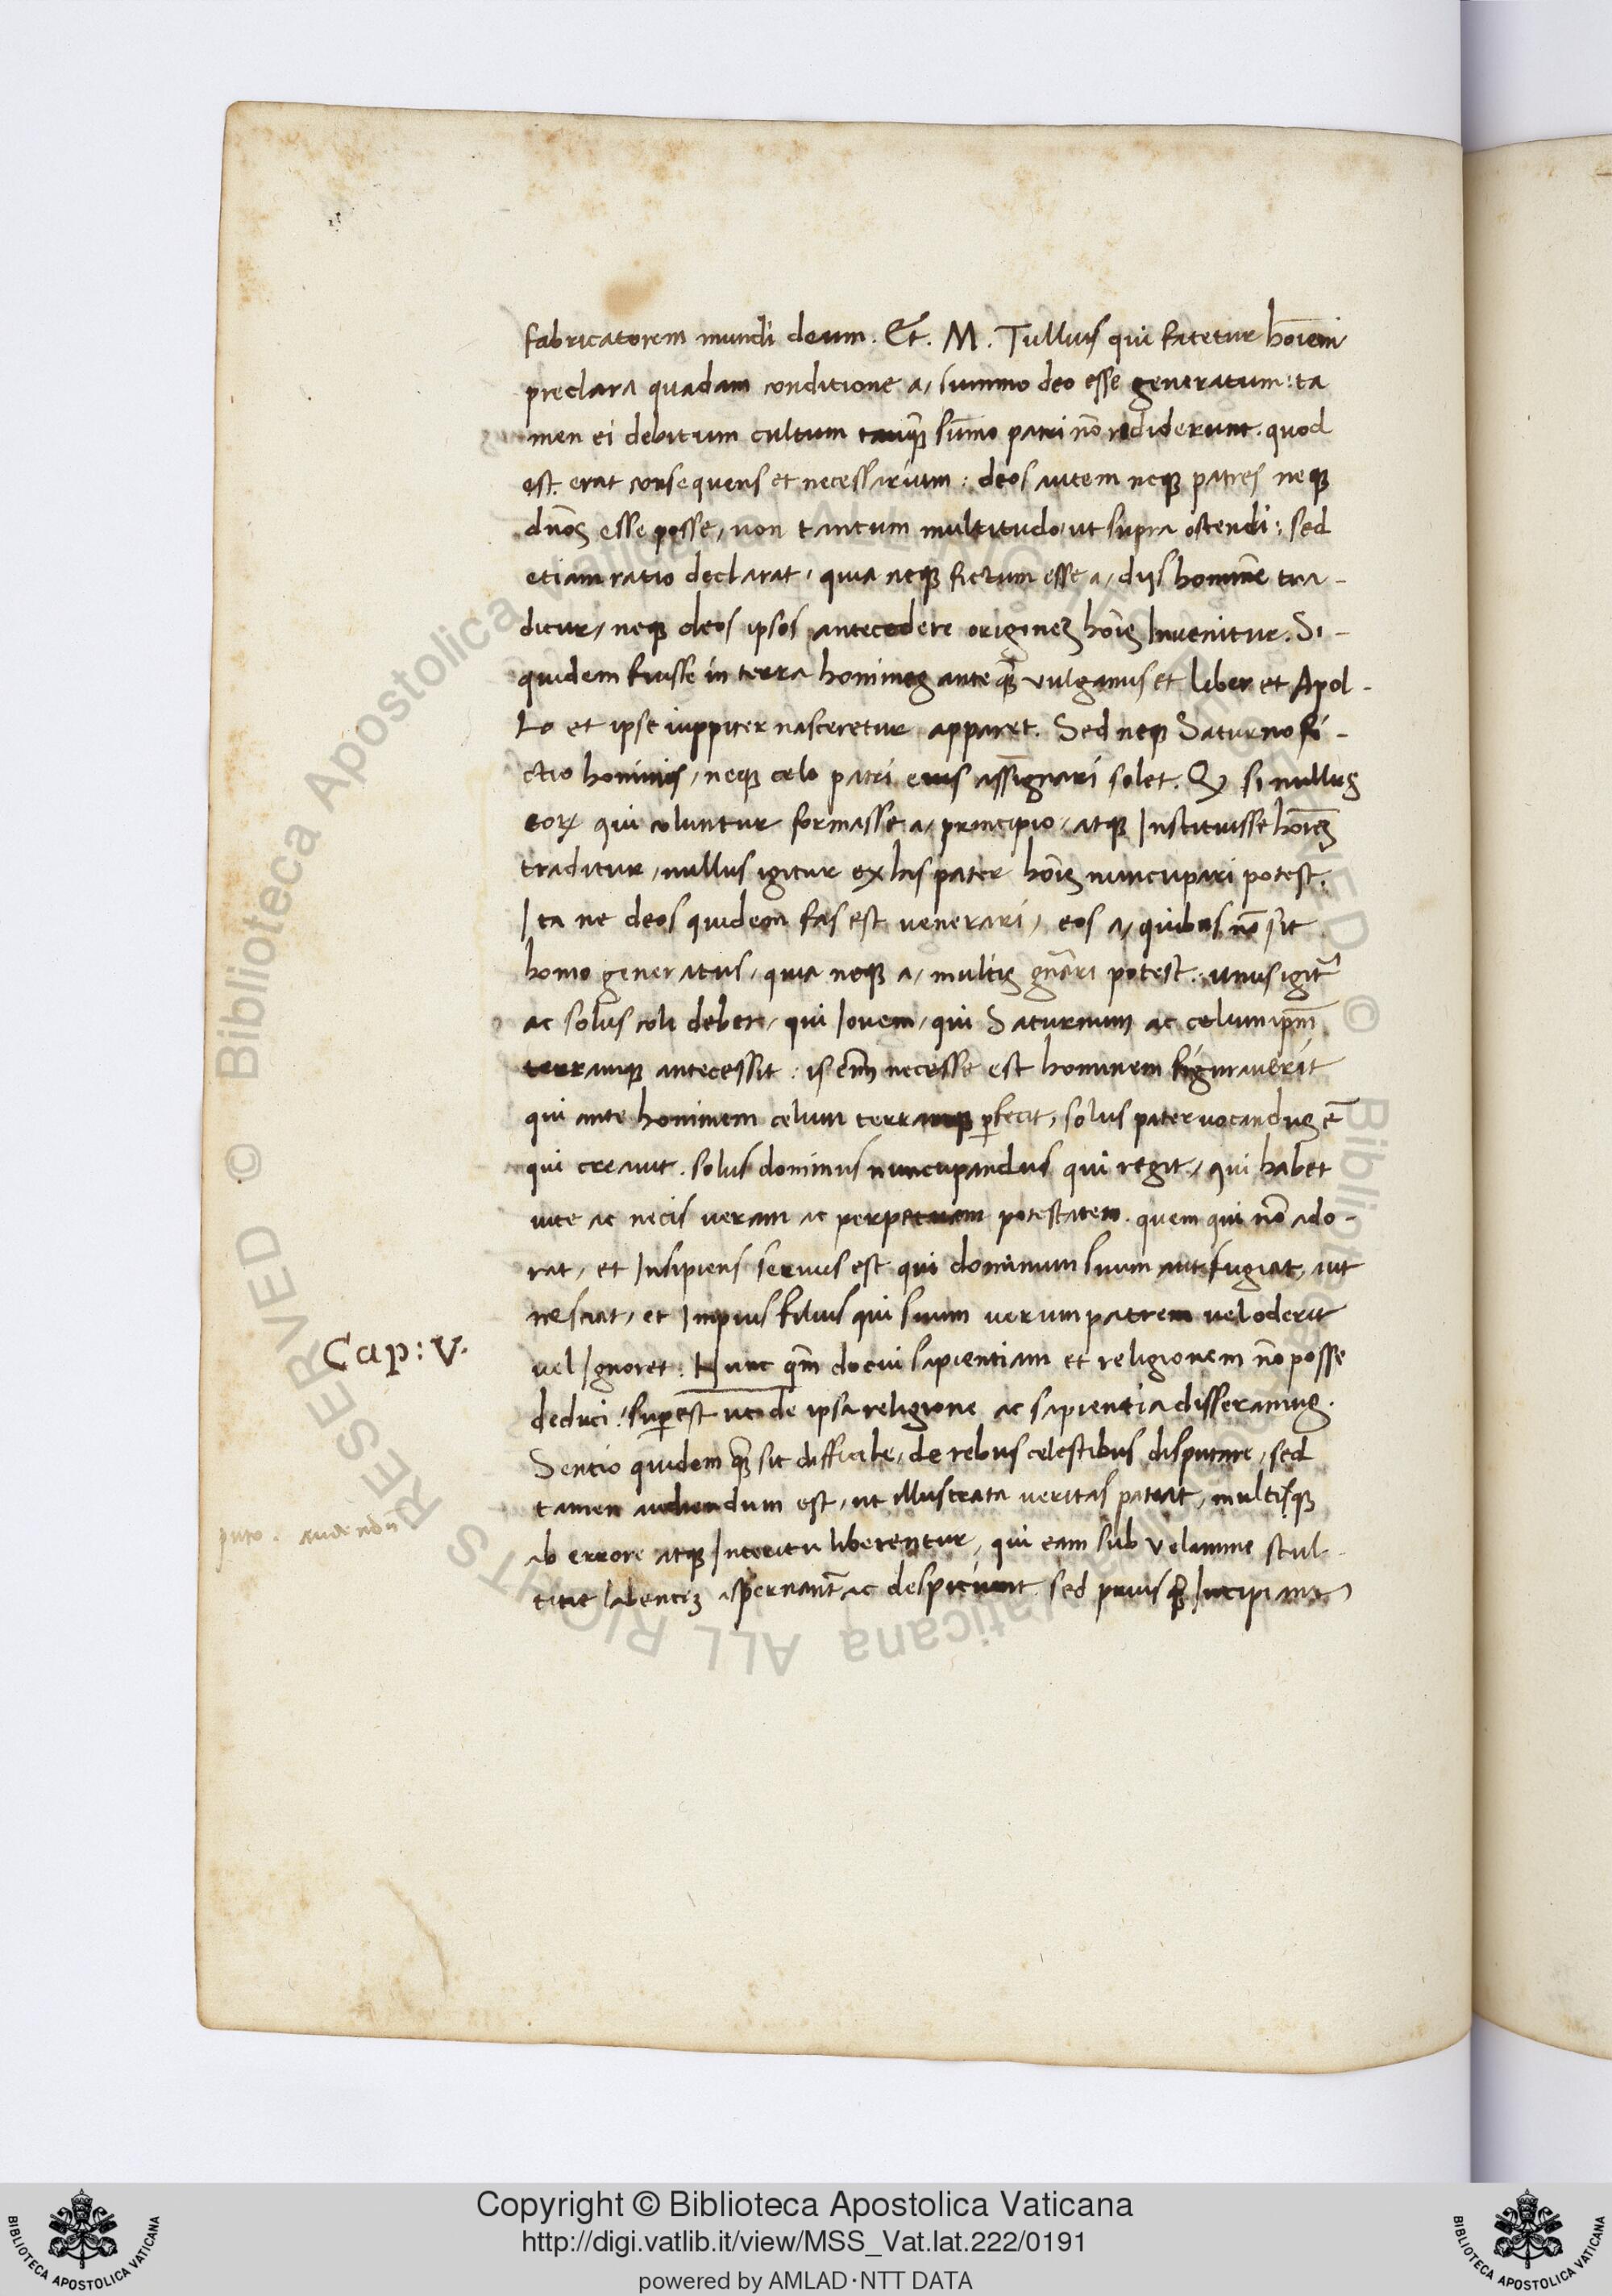 fabricatorem mundi deum. Et. M. Tullius qui fatetur hoīem
preclara quadam conditione a, summo deo esse generatum: ta
men ei debitum cultum tanq̃ sūmo patri nō rediderunt. quod
est. erat consequens et necessarium: deos autem neqꝫ patres neqꝫ
dn̄os esse posse, non tantum multitudo, ut supra ostendi: sed
etiam ratio declarat, quia neqꝫ fictum esse a, dijs hominē tra-
ditur, neqꝫ deos ipsos antecedere origineʒ hoīs Inuenitur. Si-
quidem fuisse in terra homines ante q̃ꝫ vulganus et liber et Apol-
lo et ipse iuppiter nasceretur apparet. Sed neqꝫ Saturno fi-
ctio hominis, neqꝫ celo patri eius assignari solet. Qꝫ si nullus
eoꝝ qui coluntur formasse a, principio, atqꝫ Instituisse hoīeʒ
traditur, nullus igitur ex his pater hoīs nuncupari potest.
Ita ne deos quidem fas est uenerari, eos a, quibus nō sit
homo generatus, quia neqꝫ a, multis gn̄ari potest. unus igit᷑
ac solus coli debet, qui Iouem, qui Saturnum ac celum ip̄m
terramqꝫ antecessit: is em̄ necesse est hominem figurauerit
qui ante hominem celum terramqꝫ ꝑfecit, solus pater uocandus ē
qui creauit. solus dominus nuncupandus qui regit, qui habet
uite ac necis ueram ac perpetuam potestatem. quem qui nō ado-
rat, et Insipiens seruus est qui dominum suum aut fugiat, aut
nesciat, et Impius filius qui suum uerum patrem uel oderit
Cap: V.
uel Ignoret. Nunc qm̄ docui sapientiam et religionem nō posse
deduci: suꝑest ut de ipsa religione ac sapientia disseramus.
Sentio quidem q̃ꝫ sit difficile, de rebus celestibus disputare, sed
tamen audiendum est, ut illustrata ueritas pateat, multisqꝫ
puto. audendū
ab errore atqꝫ Interitu liberentur, qui eam sub velamine stul-
titie latenteʒ aspernant᷑ ac despiciunt. sed prius q̃ꝫ Incipiam
Copyright © Biblioteca Apostolica Vaticana
http://digi.vatlib.it/view/MSS_Vat.lat.222/0191
powered by AMLAD·NTT DATA
BIBLIOTECA APOSTOLICA VATICANA
BIBLIOTECA APOSTOLICA VATICANA